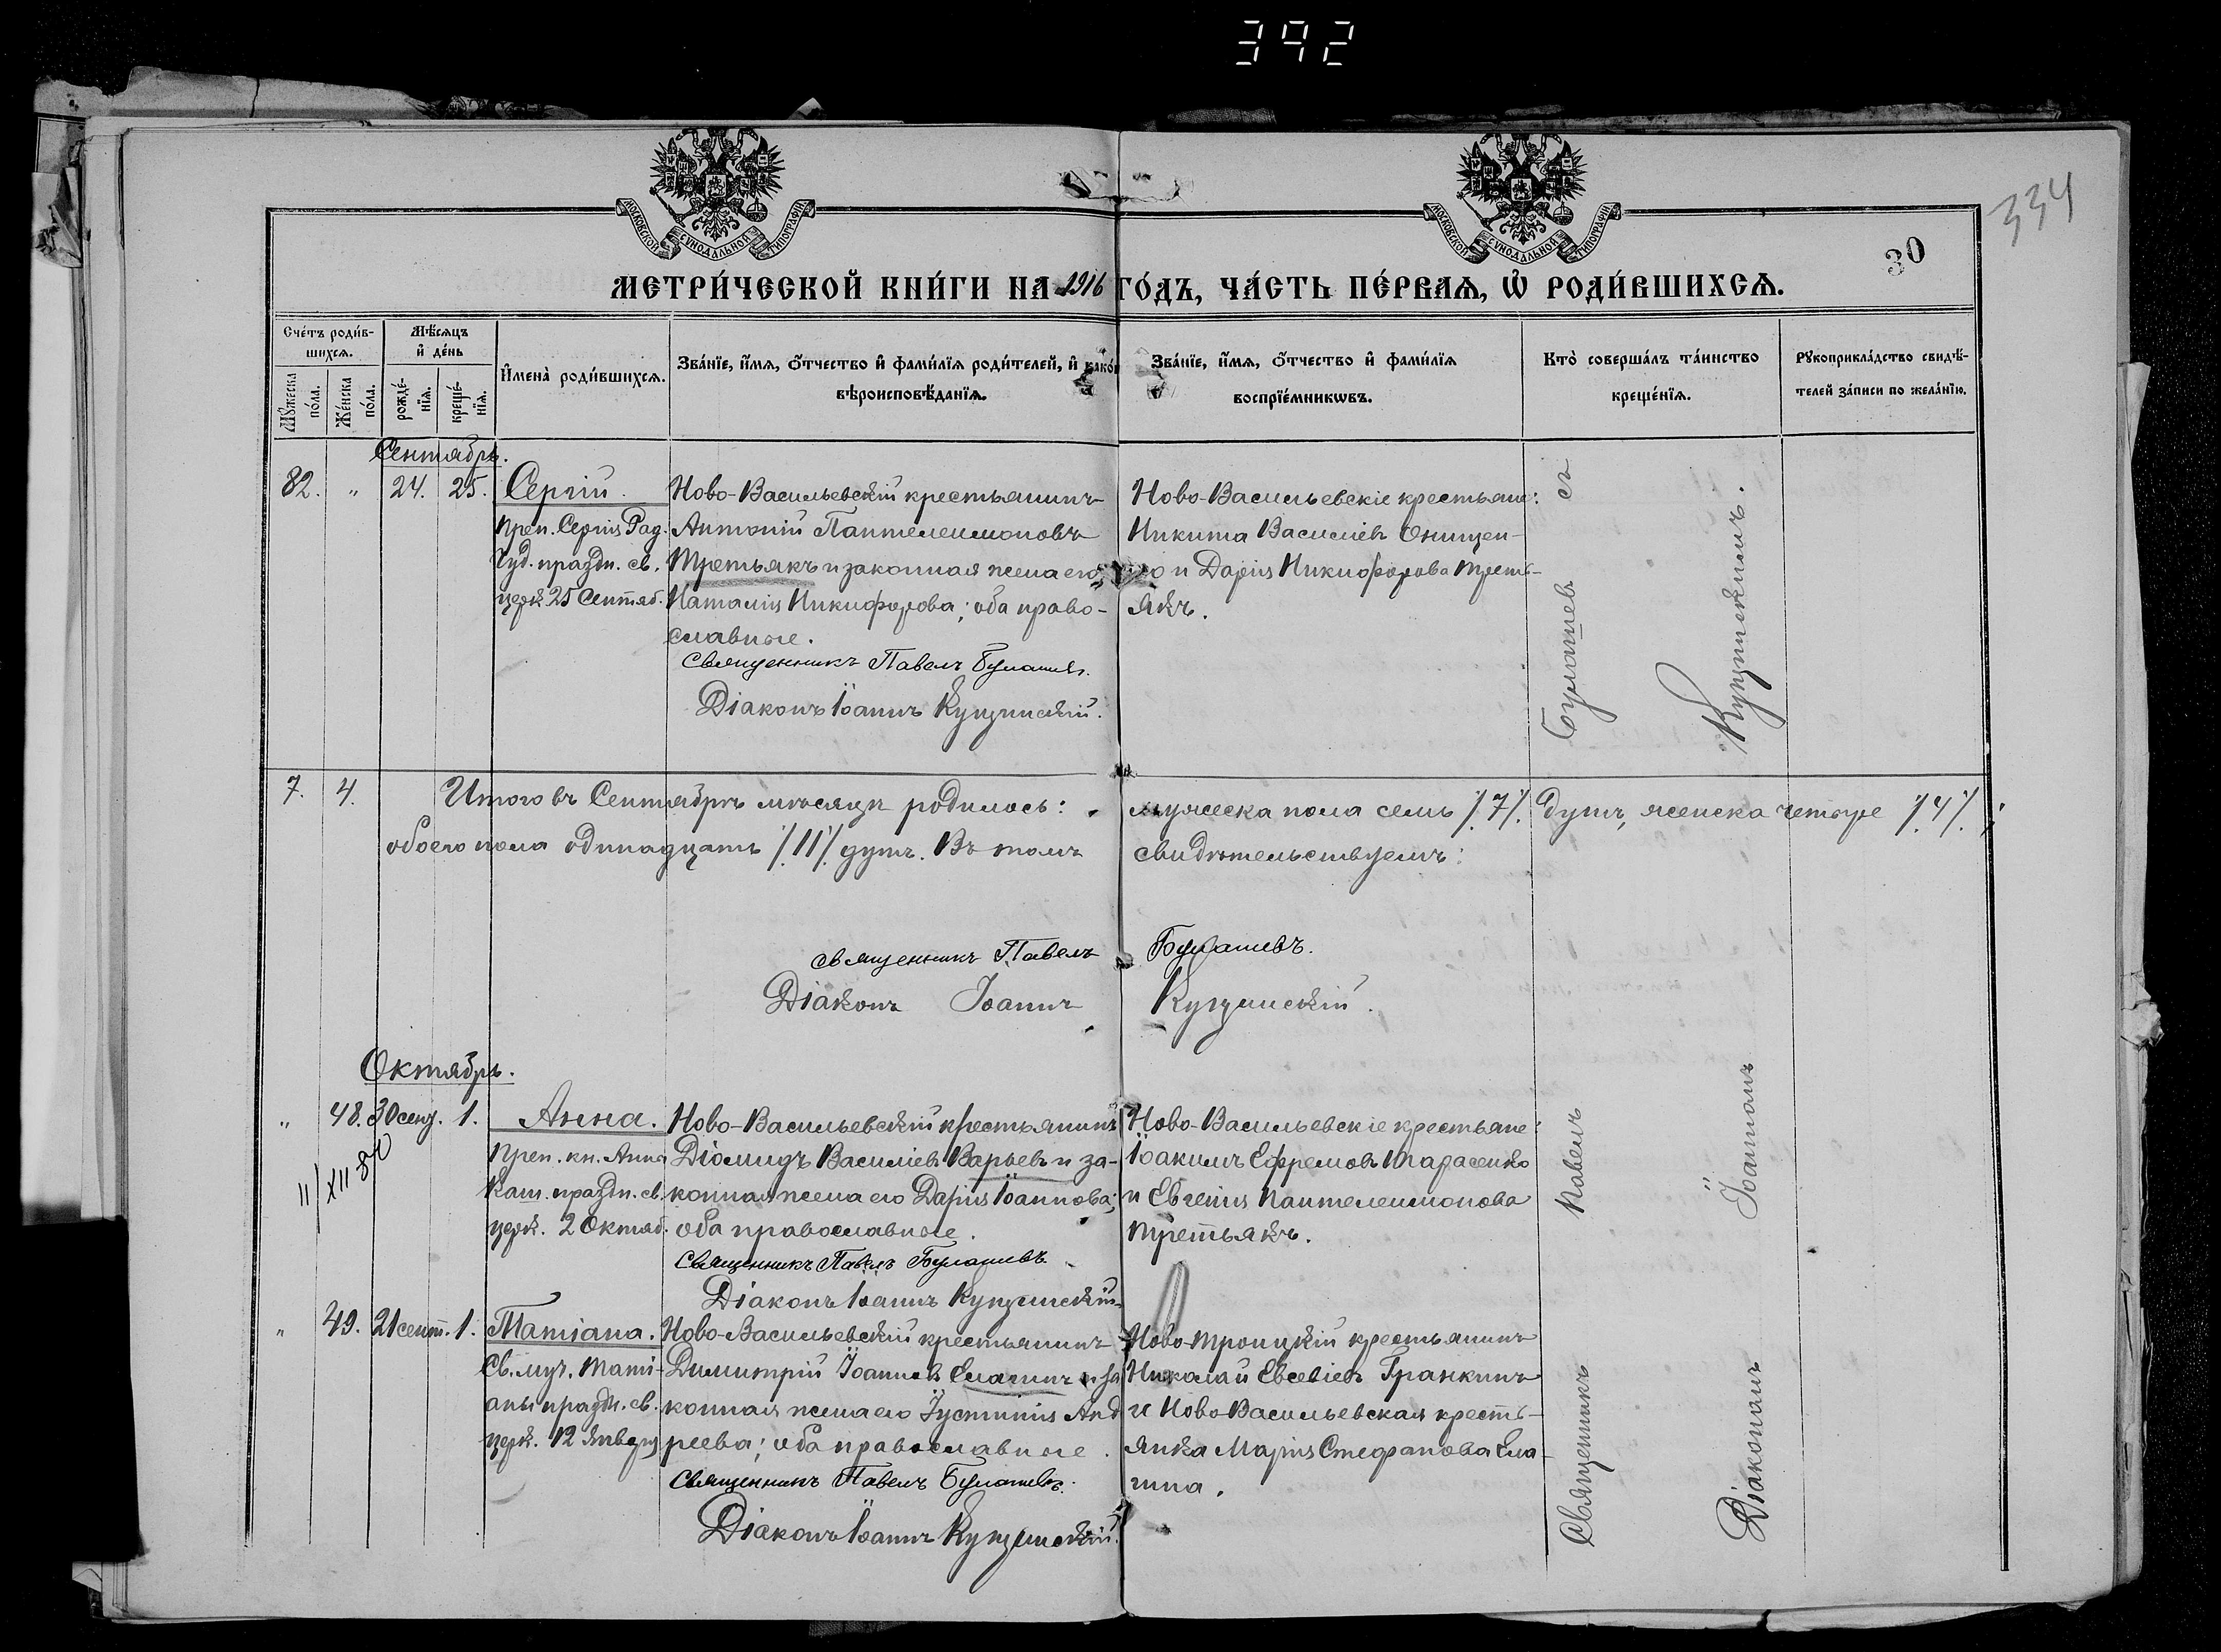 392
334
30
МОСКОВСКОЙ СѴНОДАЛЬНОЙ ТИПОГРАФІИ
МОСКОВСКОЙ СѴНОДАЛЬНОЙ ТИПОГРАФІИ
МЕТРИ́ЧЕСКОЙ КНИ́ГИ НА 1916 ГО́ДЪ, ЧА́СТЬ ПЕ́РВАѦ, Ѡ҆ РОДИ́ВШИХСѦ.
Сче́тъ роди́в-
шихсѧ.
Мѣ́сѧцъ
и҆ де́нь
Мꙋ́жеска по́ла.
Же́нска по́ла.
рожде́-
нїѧ.
креще́-
нїѧ.
И҆мена̀ роди́вшихсѧ.
Зва́нїе, и҆́мѧ, ѻ҆́тчество и҆ фами́лїѧ роди́телей, и҆ како́
вѣроисповѣ́данїѧ.
Зва́нїе, и҆́мѧ, ѻ҆́тчество и҆ фами́лїѧ
воспрїе́мникѡвъ.
Кто̀ соверша́лъ та́инство
креще́нїѧ.
Рꙋкоприкла́дство свидѣ́-
телей за́писи по жела́нїю.
Сентябрь.
82. „ 24. 25. Сергій.
Преп. Сергія Рад.
Чуд. праздн. св.
церк. 25 Сентяб.
Ново-Васильевскій крестьянинъ
Антоній Пантелеимоновъ
Третьякъ и законная жена его
Наталія Никифорова; оба право-
славные.
Священникъ Павелъ Булашевъ.
Діаконъ Іоаннъ Купчинскій.
Ново-Васильевскіе крестьяне:
Никита Василіевъ Онищен-
ко и Дарія Никифорова Треть-
якъ.
7. 4. Итого въ Сентябрѣ мѣсяцѣ родилось: мужеска пола семь /.7/. душъ, женска четыре /.4/.;
обоего пола одинадцать /.11/. душъ. Въ томъ свидѣтельствуемъ:
Священникъ Павелъ Булашевъ.
Діаконъ Іоаннъ Купчинскій.
Октябрь.
„ 48. 30 сент. 1. Анна.
11/XII 80
Преп. кн. Анна
Каш. праздн. св.
церк. 2 Октяб.
Ново-Васильевскій крестьянинъ
Діомидъ Василіевъ Варьевъ и за-
конная жена его Дарія Іоаннова;
оба православные.
Священникъ Павелъ Булашевъ.
Діаконъ Іоаннъ Купчинскій.
Ново-Васильевскіе крестьяне:
Іоакимъ Ефремовъ Тарасенко
и Евгенія Пантелеимонова
Третьякъ.
„ 49. 21 сент. 1. Татіана.
Св. муч. Тати-
аны праздн. св.
церк. 12 Января
Ново-Васильевскій крестьянинъ
Димитрій Іоанновъ Елагинъ и за
конная жена его Іустинія Анд
реева; оба православные.
Священникъ Павелъ Булашевъ.
Діаконъ Іоаннъ Купчинскій.
Ново-Троицкій крестьянинъ
Николай Евсевіевъ Гранкинъ
и Ново-Васильевская кресть-
янка Марія Стефанова Ела-
гина.
Священникъ Павелъ Булашевъ съ
Діакономъ Іоанномъ Купчинскимъ.